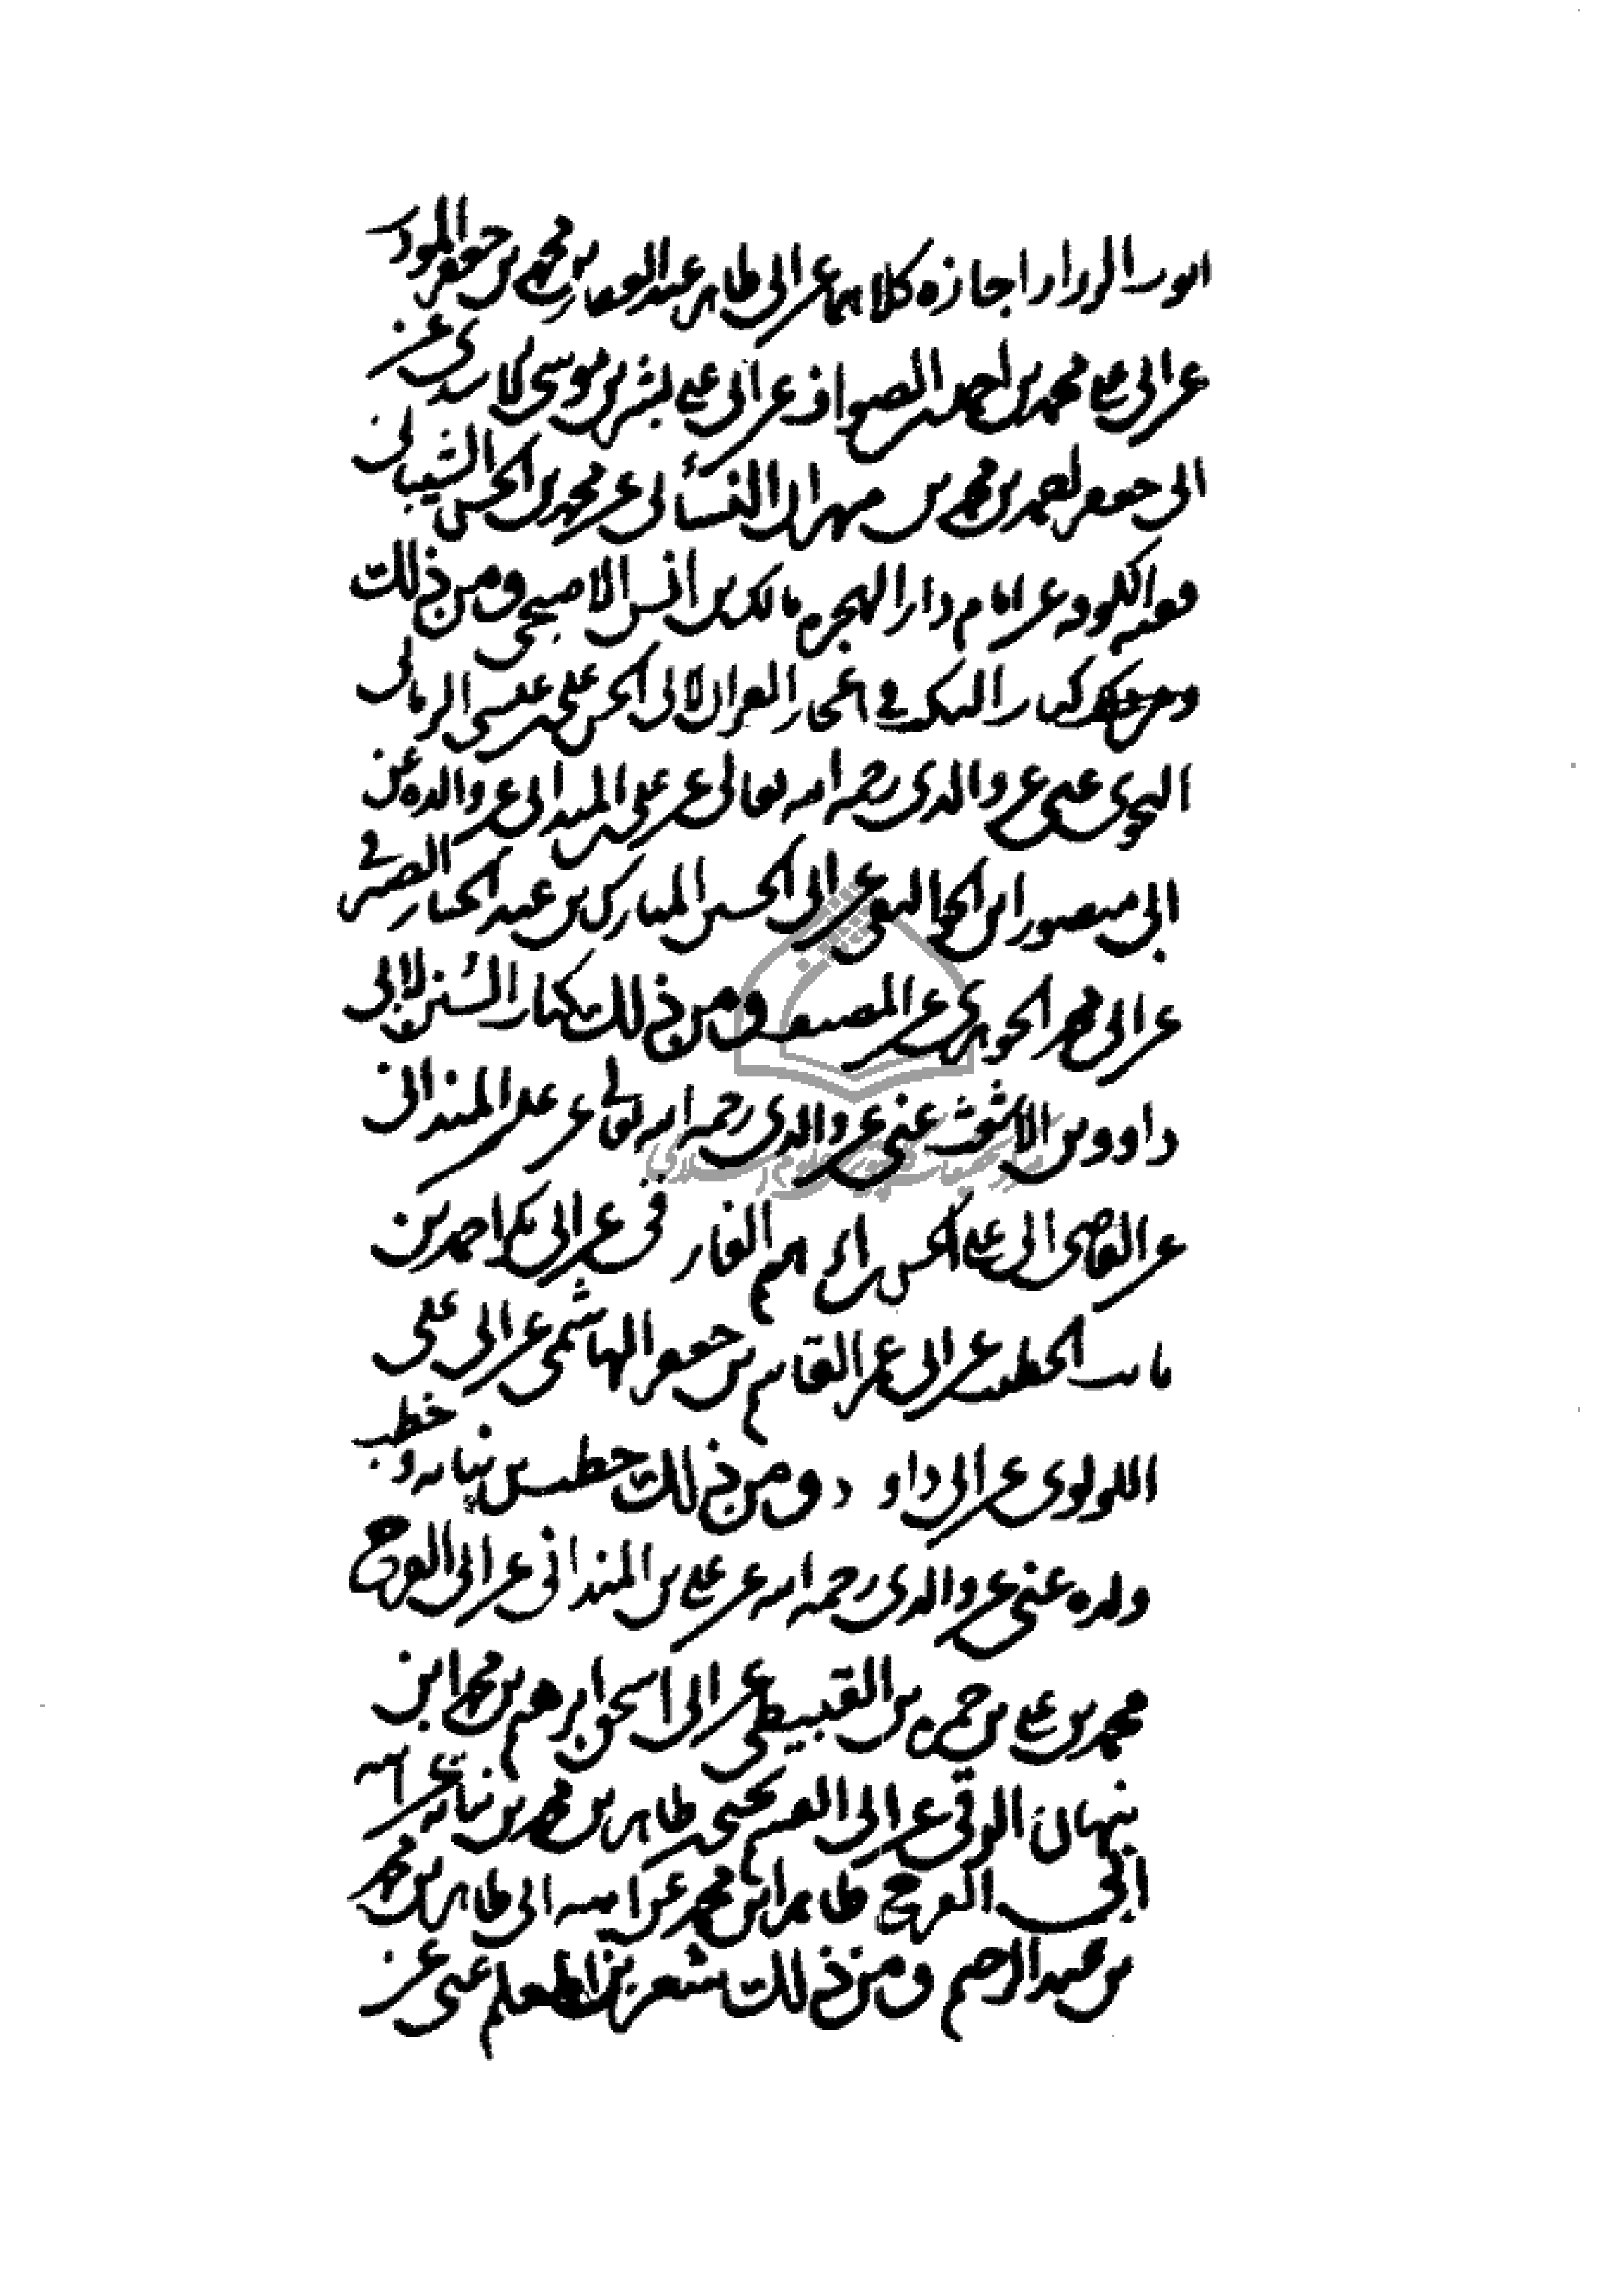 ايوب البزاز اجازه كلاهما عن ابى طاهر عبد الغفار بن محمد بن جعفر المودب
عن ابى على محمد بن احمد الصواف عن ابى على بشر بن موسى الاسدى عن
ابى جعفر احمد بن محمد بن مهران النسائى عن محمد بن الحسن الشيبانى
فقيه الكوفه عن امام دار الهجره مالك بن انس الاصبحى ومن ذلك
كتاب النكت فى اعجاز القران لابى الحسن على بن عيسى الرمانى
النحوى عنى عن والدى رحمه الله تعالى عن على بن المندائى عن والده عن
ابى منصور ابن الجواليقى عن ابى الحسين المبارك بن عبد الجبار الصيرفى
عن ابى محمد الجوهرى عن المصنف ومن ذلك كتاب السنن لابى
داوود بن الاشعث عنى عن والدى رحمه الله تعالى عن على بن المندائى
عن القاضى ابى على الحسن بن ابراهيم الفارقى عن ابى بكر احمد بن
ثابت الخطيب عن ابى عمر القاسم بن جعفر الهاشمى عن ابى على
اللولوى عن ابى داود ومن ذلك خطب بن نباته وخطب
ولده عنى عن والدى رحمه الله عن على بن المندائى عن ابى الفرج
محمد بن على بن حمزه بن القبيطى عن ابى اسحق ابرهيم بن محمد ابن
نبهان الرقى عن ابى القسم يحيى بن طاهر بن محمد بن نباته عن ابيه
ابى الفرج طاهر ابن محمد عن ابيه ابى طاهر بن محمد
بن عبد الرحيم ومن ذلك شعر بن المعلم عنى عن